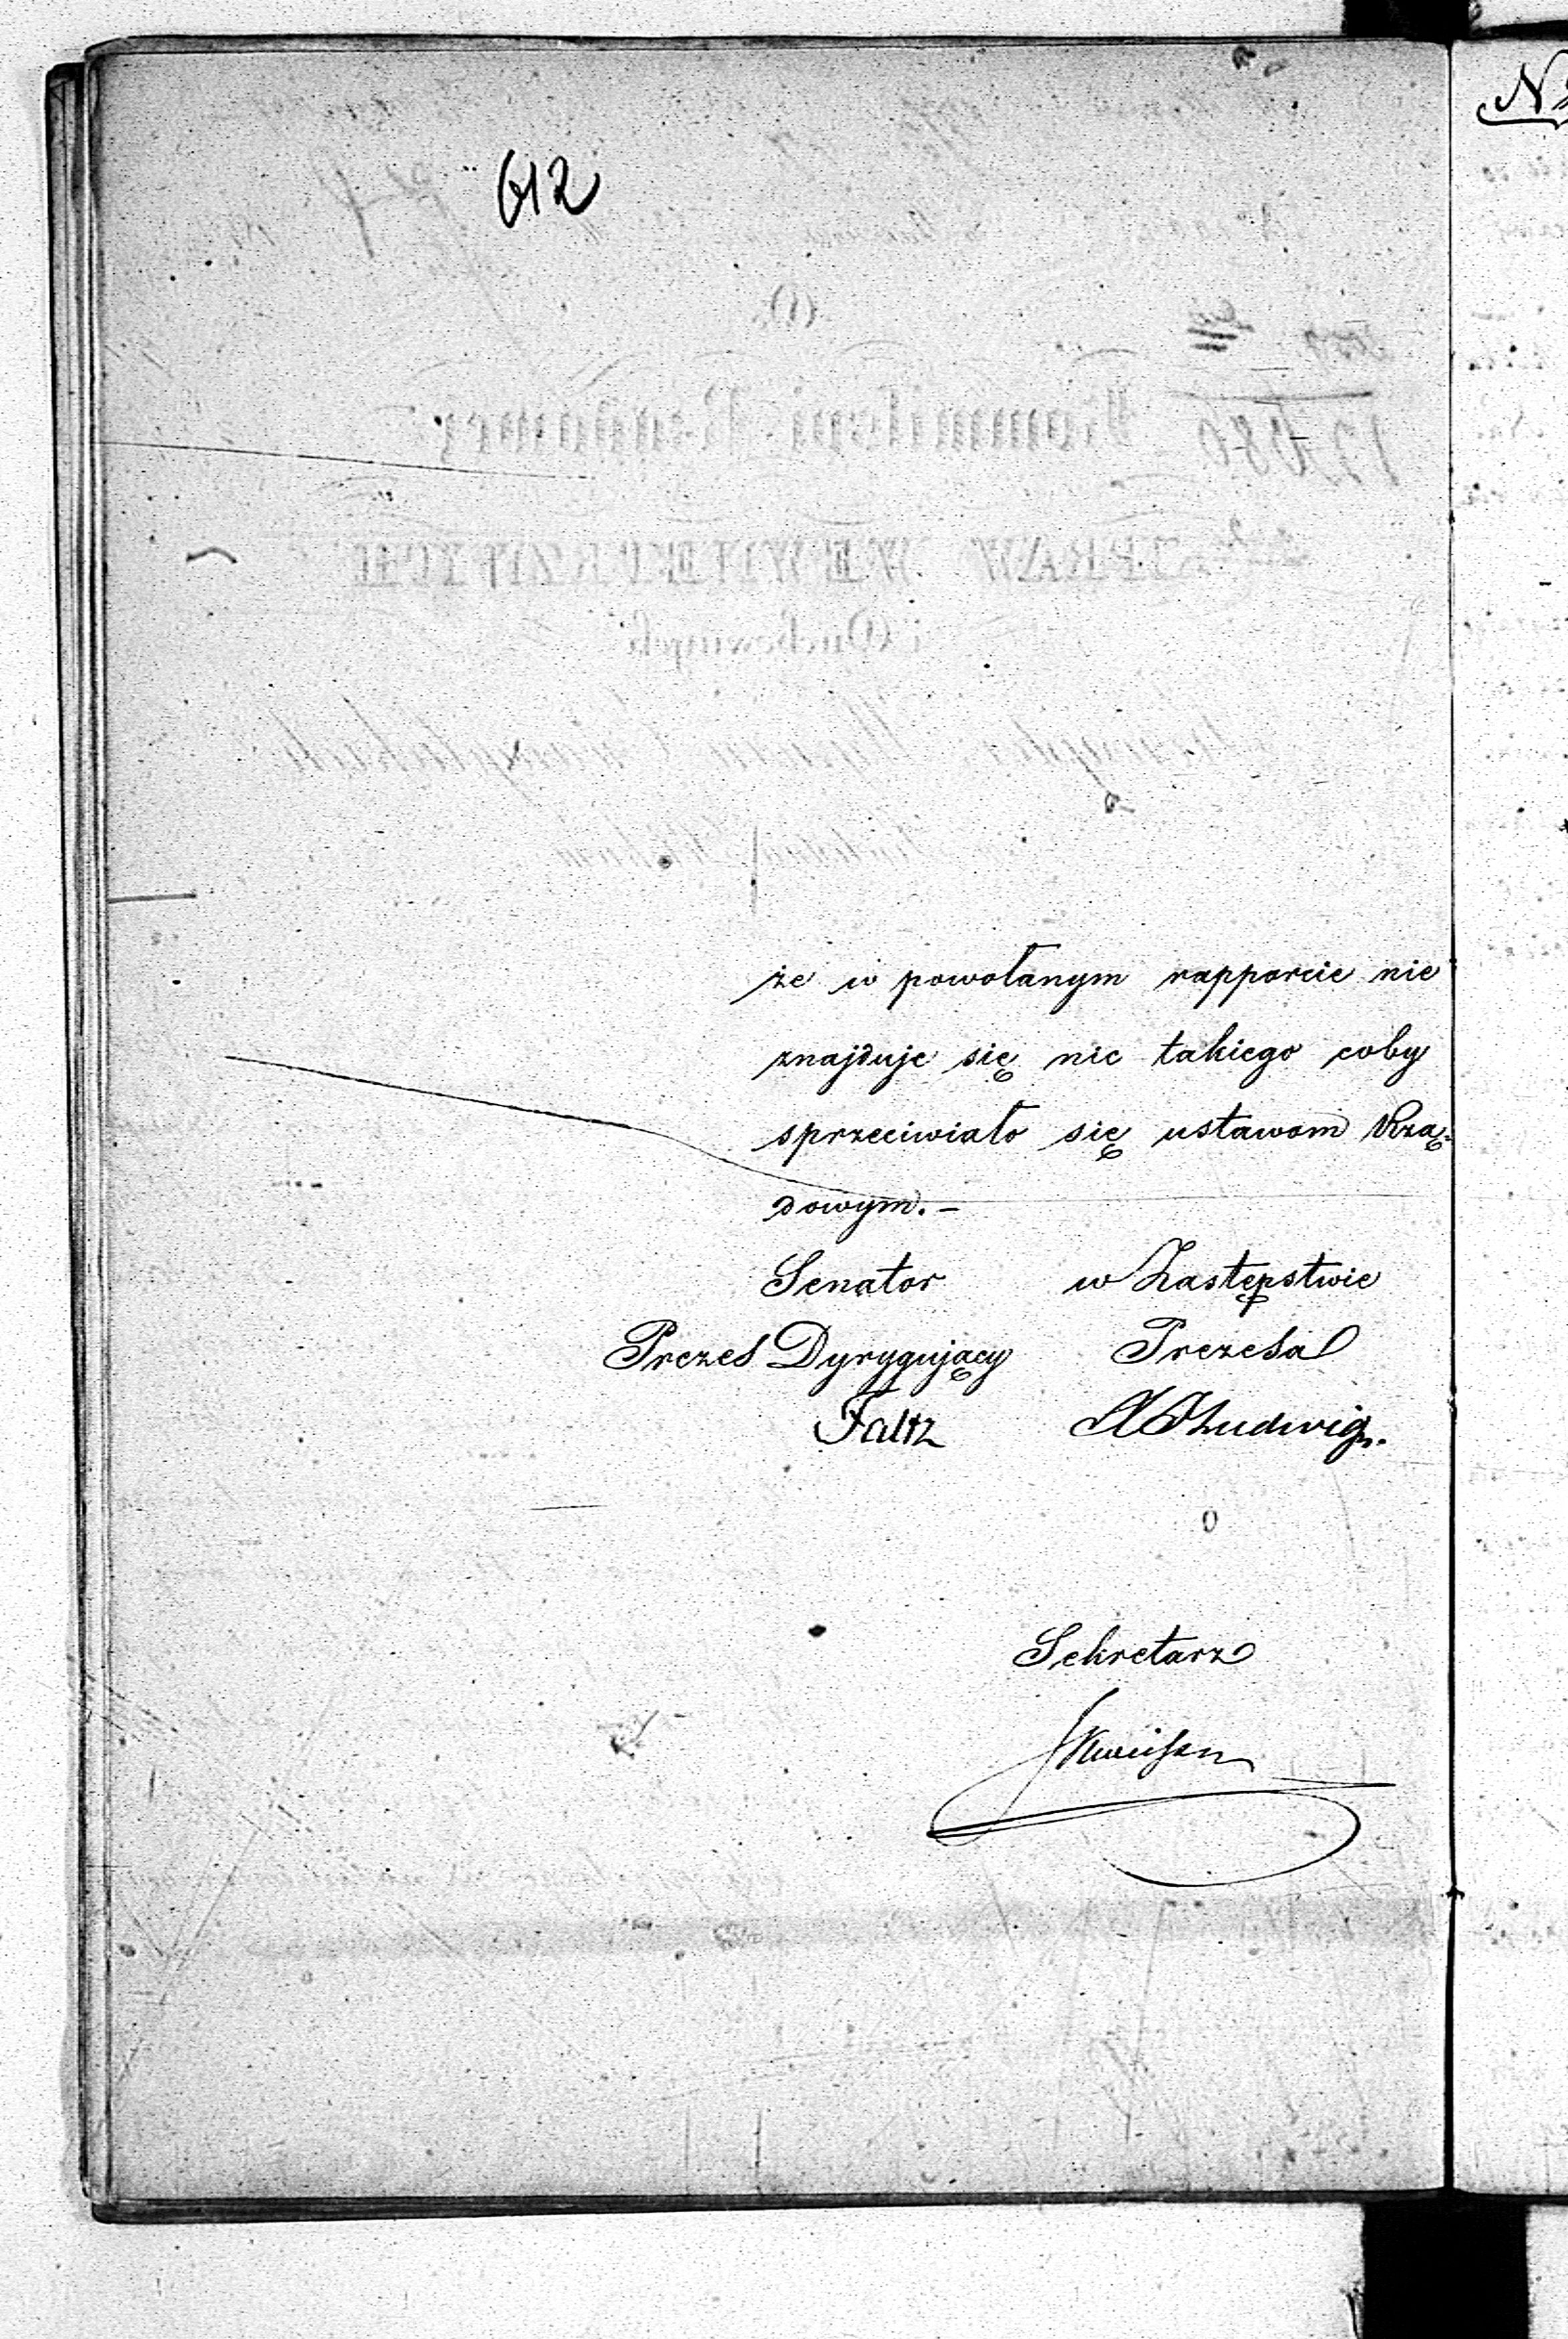 612
że w powołanym rapporcie nie
znajduje się nic takiego coby
sprzeciwiało się ustawom Rzą-
dowym. -
Senator w Zastępstwie
Prezes Dyrygujący Prezesa
Faltz Ludwig.
Sekretarz